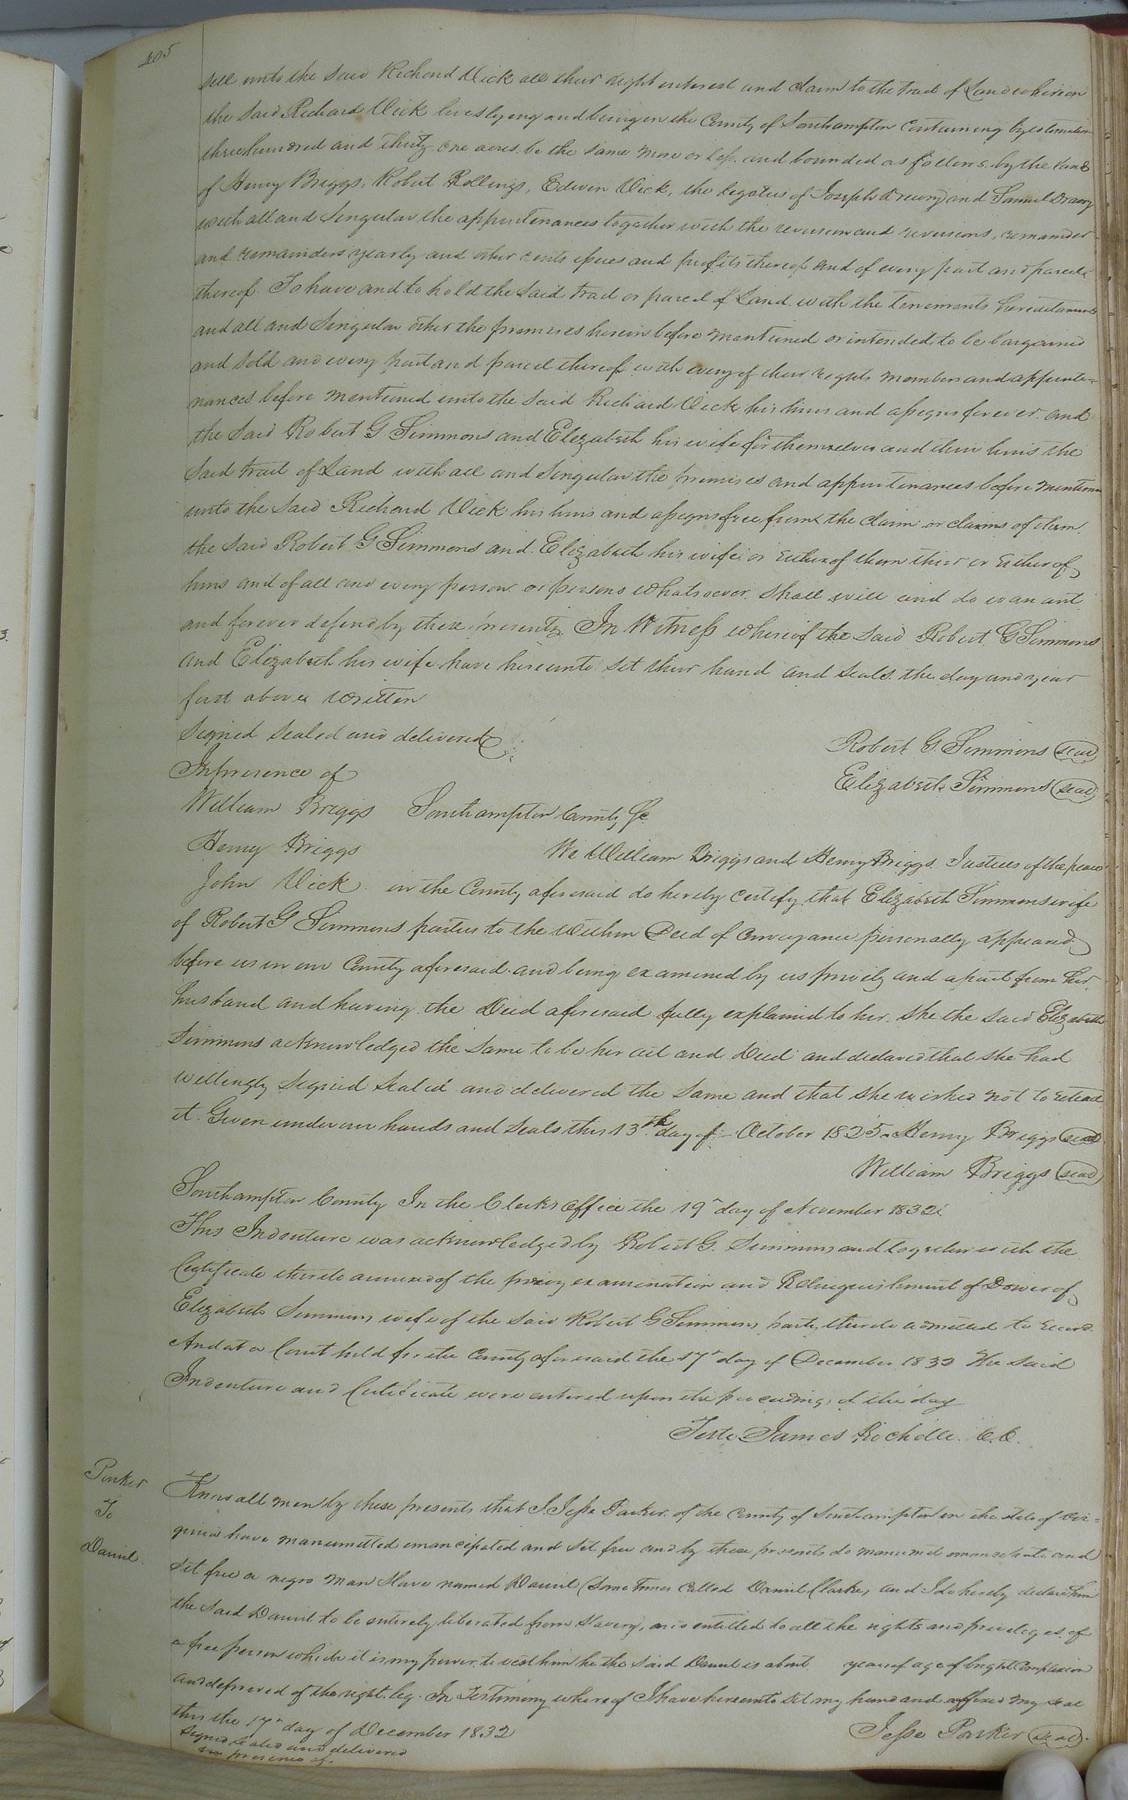 205
sell unto the said Richard Vick all their right interest and claim to the tract of Land whereon
the said Richard Vick lives lying and being in the County of Southampton Containing by estimation
three hundred and thirty one acres be the same more or less and bounded as follows by the Lands
of Henry Briggs, Robert Rollings, Edwin Vick, the legatees of Joseph Drewry and Samuel Drewry
with all and Singular the appurtenances together with the reversion and reversions, remainder
and remainders yearly and other rents issues and profits thereof and of every part and parcel
thereof To have and to hold the said tract or parcel of Land with the tenements hereditaments
and all and Singular other the premises herein before mentioned or intended to be bargained
and sold and every part and parcel thereof with every of their rights members and appurte=
nances before mentioned unto the said Richard Vick his heirs and assigns forever and
the said Robert G Simmons and Elizabeth his wife for themselves and their heirs the
said tract of Land with all and Singular the premises and appurtenances before mentioned
unto the said Richard Vick his heirs and assigns free from the claim or claims of them
the said Robert G Simmons and Elizabeth his wife or either of them their or either of
heirs and of all and every person or persons whatsoever shall will and do warrant
and forever defend by these presents In Witness whereof the said Robert G Simmons
and Elizabeth his wife have hereunto set their hand and seals the day and year
first above written
Signed Sealed and delivered
In presence of
Robert G. Simmons seal
Elizabeth Simmons seal
William Briggs Southampton County Sc
Henry Briggs We William Briggs and Henry Briggs Justices of the peace
John Vick in the County aforesaid do hereby certify that Elizabeth Simmons wife
of Robert G Simmons parties to the within Deed of Conveyance personally appeared
before us in our County aforesaid and being examined by us privily and apart from her
husband and having the Deed aforesaid fully explained to her. She the said Elizabeth
Simmons acknowledged the same to be her act and Deed and declared that she had
willingly signed sealed and delivered the same and that she wished not to retract
it Given under our hands and seals this 13th day of October 1825. Henry Briggs seal
William Briggs seal
Southampton County In the Clerks office the 19th day of November 1832.
This Indenture was acknowledged by Robert G. Simmons and together with the
Certificate thereto annexed of the privy examination and Relinquishment of Dower of
Elizabeth Simmons wife of the said Robert G Simmons party thereto admitted to record
And at a Court held for the County aforesaid the 17th day of December 1832 The said
Indenture and Certificate were entered upon the proceedings of the day
Teste James Rochelle C.C.
Parker
To
Daniel
Know all men by these presents that I Jesse Parker of the County of Southampton in the State of Vir=
ginia have manumitted emancipated and set free and by these presents do manumit emancipate and
set free a negro man slave named Daniel (Some times Called Daniel Clarke) and I do hereby declare him
the said Daniel to be entirely liberated from slavery, and entitled to all the rights and privileges of
a free person which it is my power to vest him he the said Daniel is about years of age of bright Complexion
and deprived of the right leg. In Testimony whereof I have hereunto set my hand and affixed my seal
this the 17th day of December 1832
Jesse Parker seal
Signed Sealed and delivered
in presence of